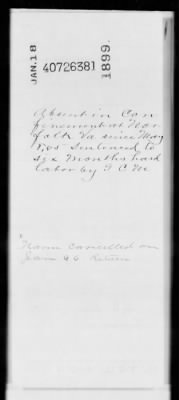 JAN. 18
40726381
1899.
Absent in Con
finement at Nor
folk Va since May
5, 65 Sentenced to
six months hard
labor by G C M
Name cancelled on
Jan 66 Return